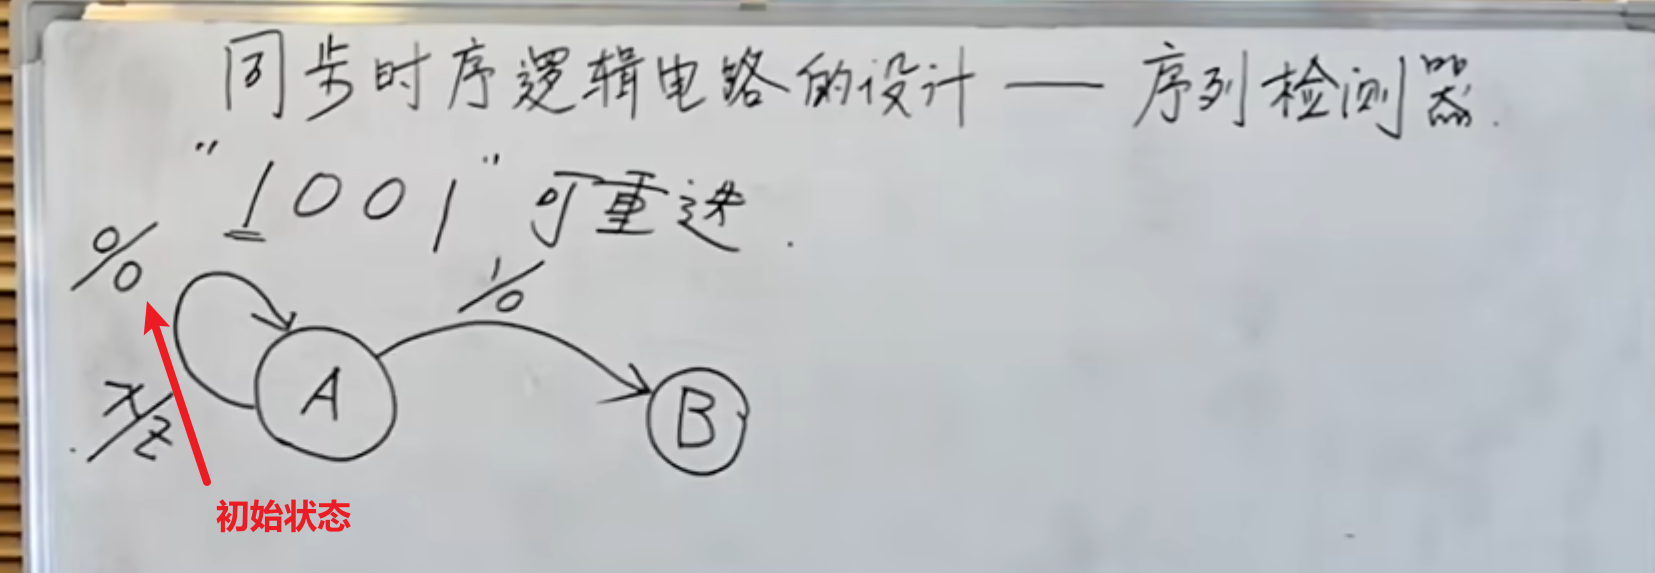 同步时序逻辑电路的设计 — 序列检测器.
"1001"可重迭.
0/0
1/0
A
B
x/z
初始状态